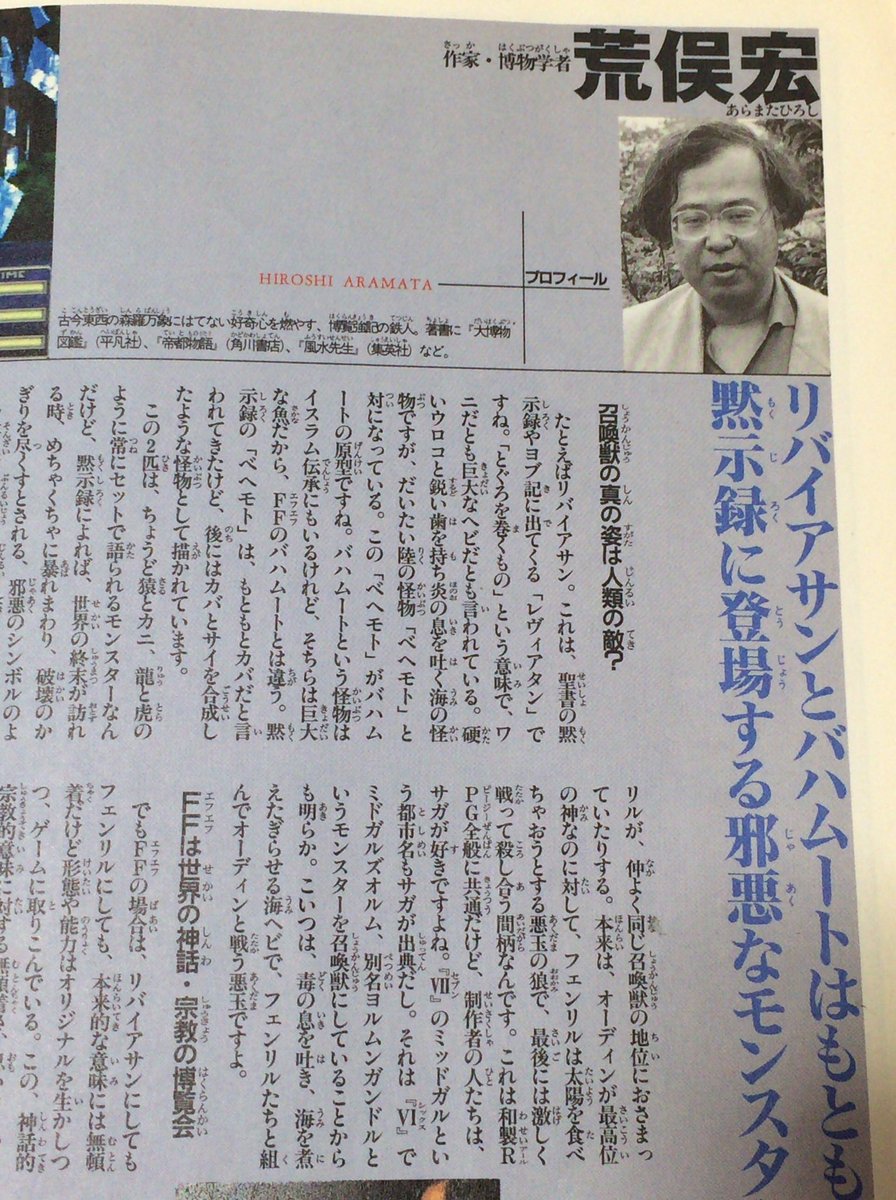 作家・博物学者
荒俣宏
あらまたひろし
HIROSHI ARAMATA
プロフィール
古今東西の森羅万象にはてない好奇心を燃やす、博覧強記の鉄人。著書に『大博物
図鑑』（平凡社）、『帝都物語』（角川書店）、『風水先生』（集英社）など。
TIME
リバイアサンとバハムートはもとも
黙示録に登場する邪悪なモンスタ
召喚獣の真の姿は人類の敵？
たとえばリバイアサン。これは、聖書の黙
示録やヨブ記に出てくる「レヴィアタン」で
すね。「とぐろを巻くもの」という意味で、ワ
ニだとも巨大なヘビだとも言われている。硬
いウロコと鋭い歯を持ち炎の息を吐く海の怪
物ですが、だいたい陸の怪物「ベヘモト」と
対になっている。この「ベヘモト」がバハム
ートの原型ですね。バハムートという怪物は
イスラム伝承にもいるけれど、そちらは巨大
な魚だから、FFのバハムートとは違う。黙
示録の「ベヘモト」は、もともとカバだと言
われてきたけど、後にはカバとサイを合成し
たような怪物として描かれています。
この2匹は、ちょうど猿とカニ、龍と虎の
ように常にセットで語られるモンスターなん
だけど、黙示録によれば、世界の終末が訪れ
る時、めちゃくちゃに暴れまわり、破壊のか
ぎりを尽くすとされる、邪悪のシンボルのよ
リルが、仲よく同じ召喚獣の地位におさまっ
ていたりする。本来は、オーディンが最高位
の神なのに対して、フェンリルは太陽を食べ
ちゃおうとする悪玉の狼で、最後には激しく
戦って殺し合う間柄なんです。これは和製R
PG全般に共通だけど、制作者の人たちは、
サガが好きですよね。『Ⅶ』のミッドガルとい
う都市名もサガが出典だし。それは『Ⅵ』で
ミドガルズオルム、別名ヨルムンガンドルと
いうモンスターを召喚獣にしていることから
も明らか。こいつは、毒の息を吐き、海を煮
えたぎらせる海ヘビで、フェンリルたちと組
んでオーディンと戦う悪玉ですよ。
FFは世界の神話・宗教の博覧会
でもFFの場合は、リバイアサンにしても
フェンリルにしても、本来的な意味には無頓
着だけど形態や能力はオリジナルを生かしつ
つ、ゲームに取りこんでいる。この、神話的
宗教的意味に対する無頓着さ、